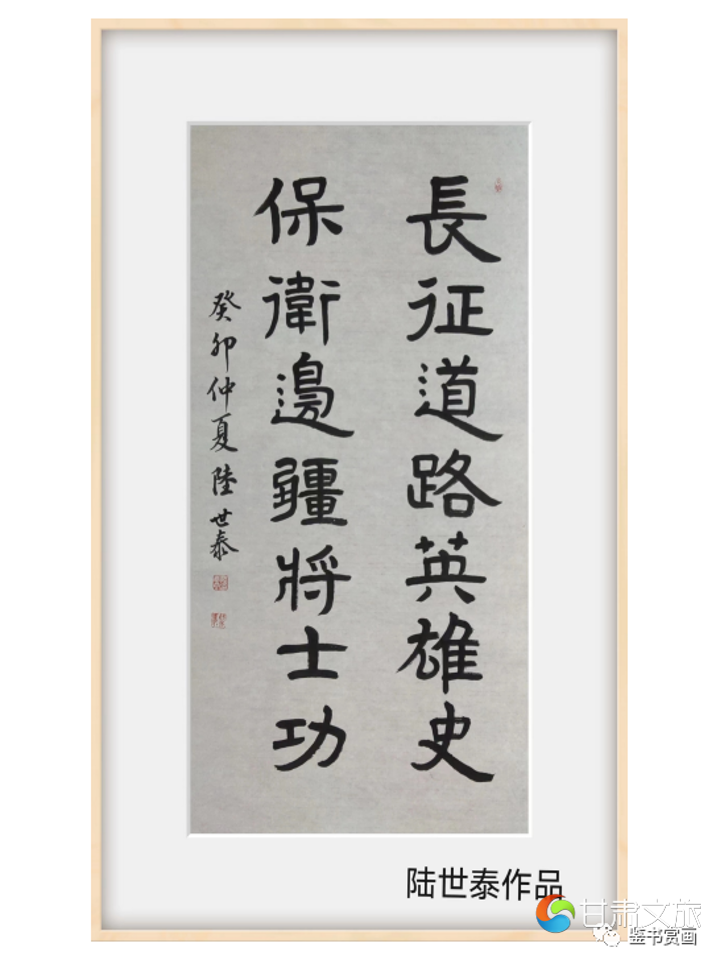 長征道路英雄史
保衛邊疆將士功
癸卯仲夏陸世泰
陆世泰作品
甘肃文旅
鉴书赏画